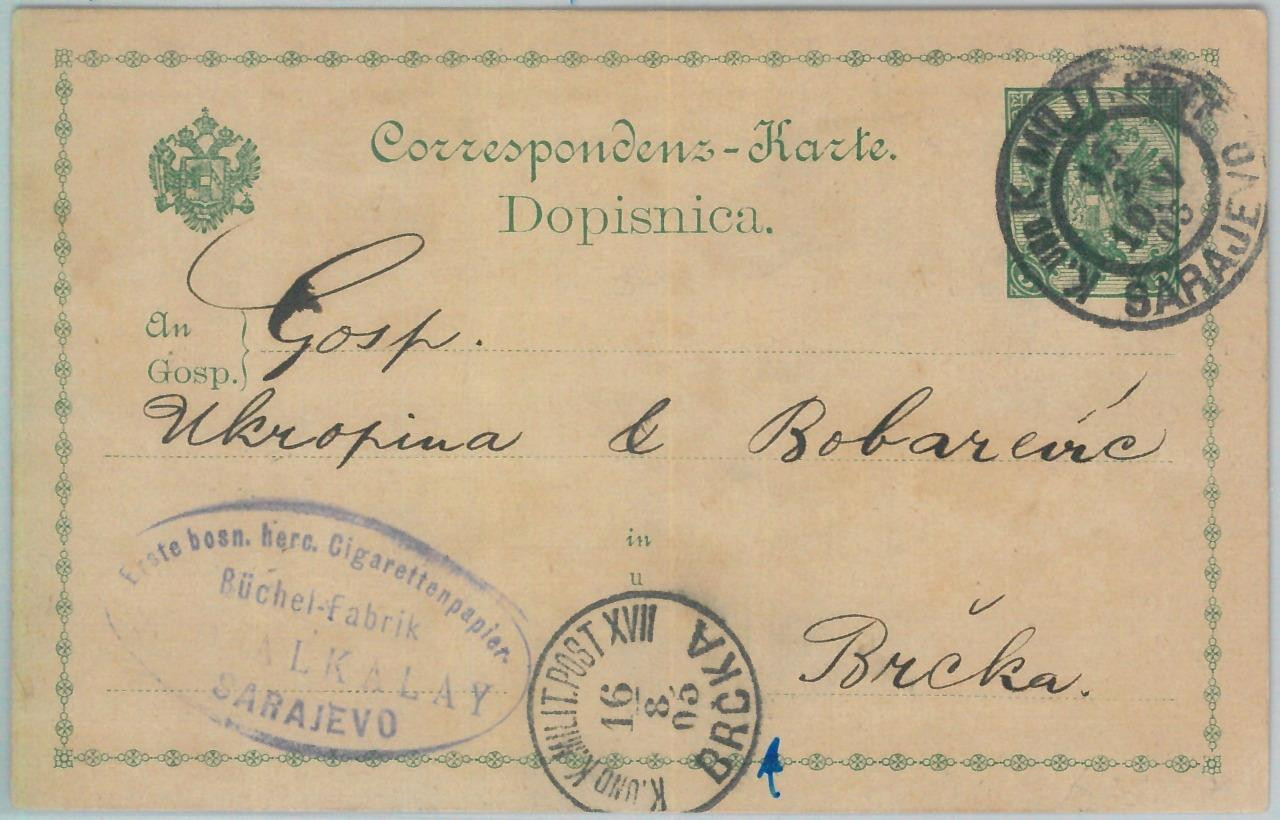 Correspondenz-Karte.
Dopisnica.
K. UND K. MILIT. POST
SARAJEVO
10
An
Gosp.
Gosp.
Ukropina & Bobarević
in
u
Brčka.
Erste bosn. herc. Cigarettenpapier.
Büchel-Fabrik
ALKALAY
SARAJEVO
K. UND K. MILIT. POST XVII
16
8
05
BRČKA